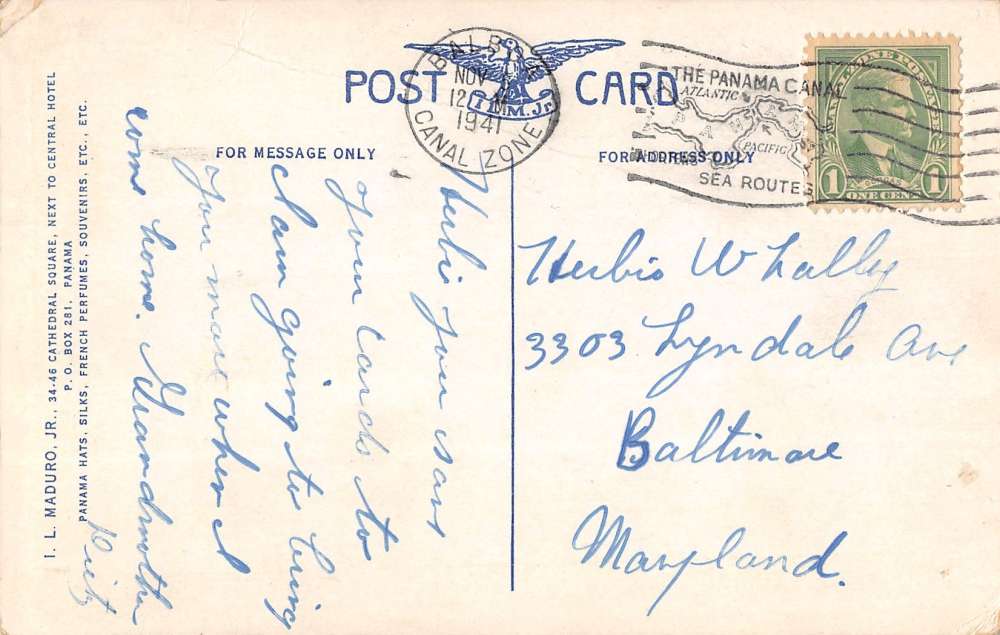 I. L. MADURO, JR., 34-46 CATHEDRAL SQUARE, NEXT TO CENTRAL HOTEL
P. O. BOX 281, PANAMA
PANAMA HATS, SILKS, FRENCH PERFUMES, SOUVENIRS, ETC., ETC.
POST CARD
I L M. Jr.
FOR MESSAGE ONLY
FOR ADDRESS ONLY
BALBOA
NOV
12 M
1941
CANAL ZONE
THE PANAMA CANAL
ATLANTIC
PACIFIC
SEA ROUTES
CANAL ZONE POSTAGE
1 ONE CENT 1
Herbie you save
your cards to
I am going to bring
you more when I
come home. Grandmother
Herbie Whally
3303 Lyndale Ave
Baltimore
Maryland.